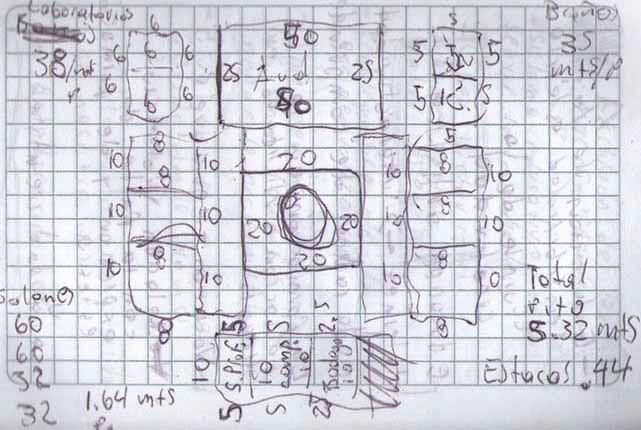 Laboratorios
38/mt
Baños
35
mts/p
6
6
6
6
6
6
6
6
50
25
Aud
25
50
5
5
5
5
12.5
5
5
8
10
10
8
10
10
8
10
10
8
20
20
20
20
10
10
10
8
10
8
10
8
8
Salones
60
60
32
32
1.64 mts
5
5
2.5
10
S.Prof
10
comp.
10
Bodega
10
5
5
2.5
Total
5.32 mts
Estacas .44